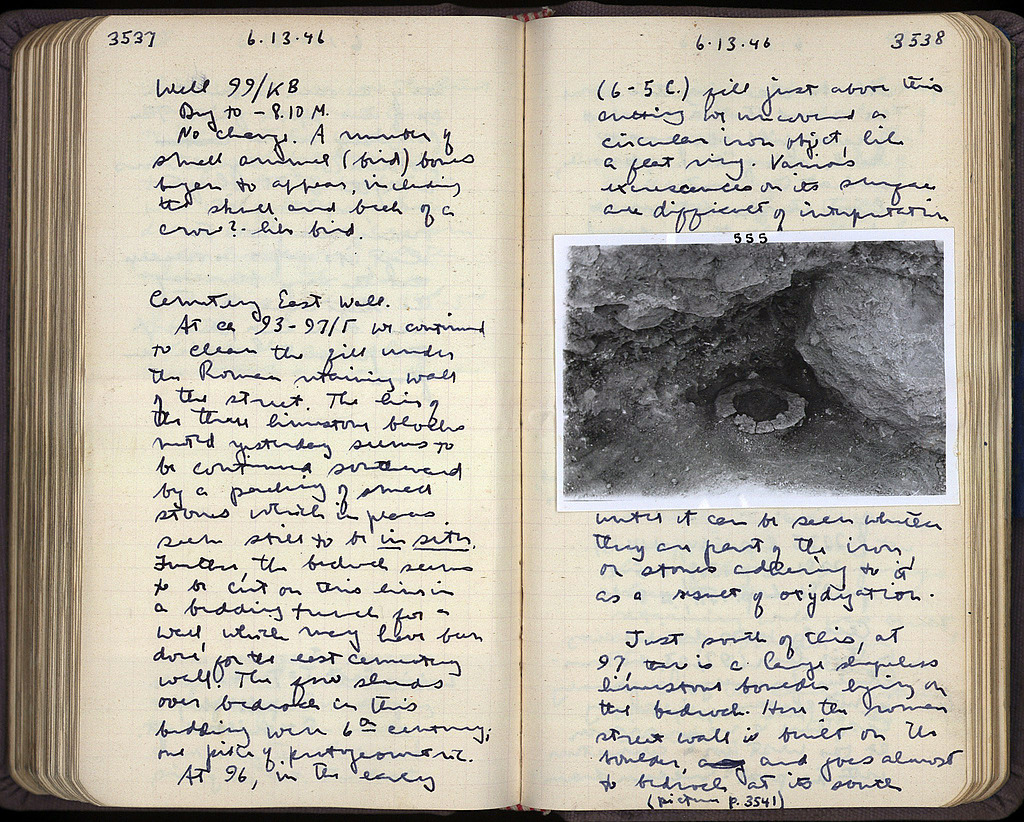 3537
6.13.46
Well 99/KB
Dug to -8.10 M.
No change. A number of
small animal (bird) bones
began to appear, including
the skull and beak of a
crow?-like bird.
Cemetery East Wall.
At ca 93-97/Γ we continued
to clean the fill under
the Roman retaining wall
of the street. The line of
the three limestone blocks
noted yesterday seems to
be continued southward
by a packing of small
stones which in places
seem still to be in situ.
Further, the bedrock seems
to be cut on this line in
a bedding trench for a
wall which may have been
done for the east cemetery
wall. The few sherds
over bedrock in this
bedding were 6th century;
one piece of protogeometric.
At 96, in the early
6.13.46
3538
(6-5 C.) fill just above this
cutting we uncovered a
circular iron object, like
a flat ring. Various
excrescences on its surface
are difficult of interpretation
555
until it can be seen whether
they are part of the iron,
or stones adhering to it
as a result of oxydization.
Just south of this, at
97, is a large shapeless
limestone boulder lying on
the bedrock. Here the Roman
street wall is built on the
boulder, and goes almost
to bedrock at its south
(picture p. 3541)